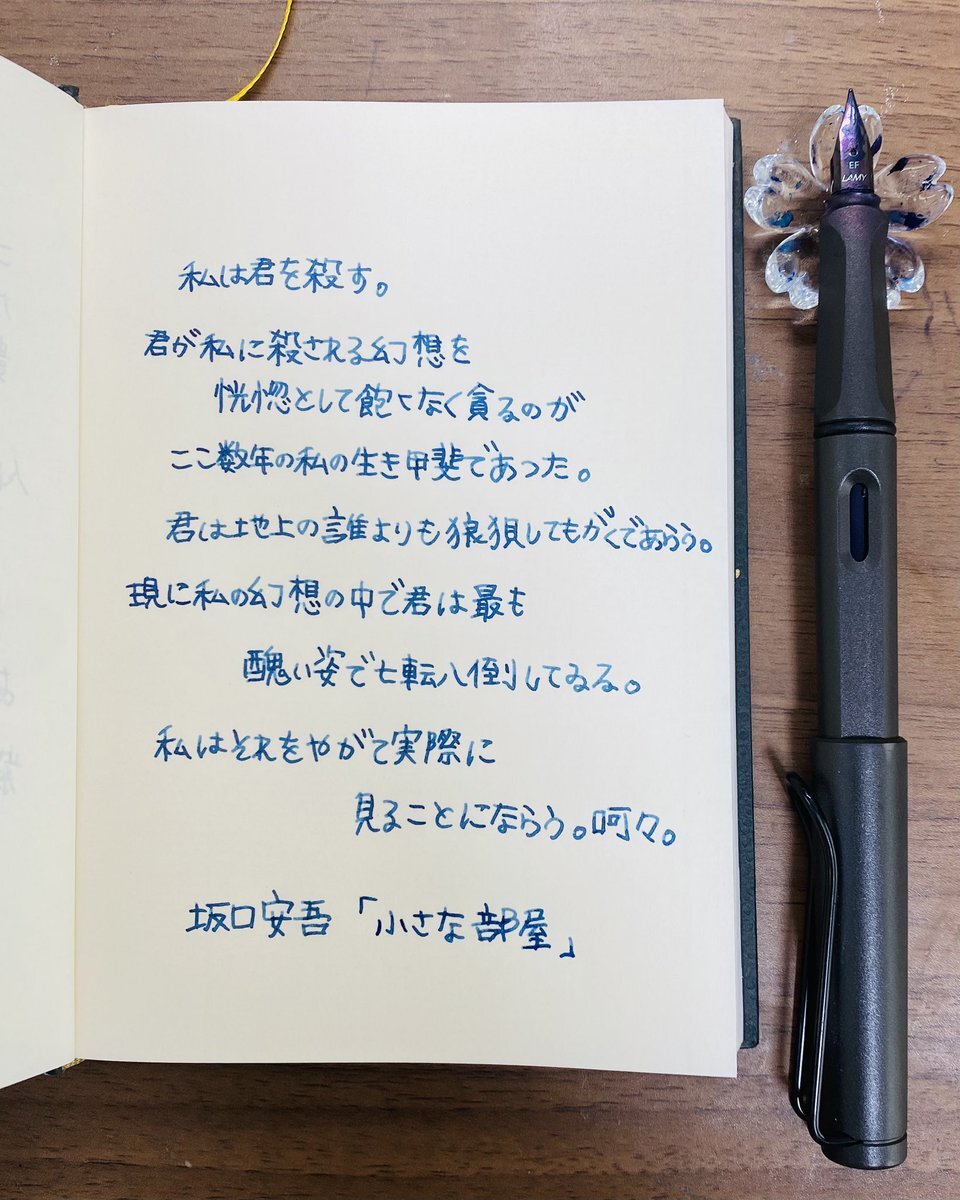 私は君を殺す。
君が私に殺される幻想を
恍惚として飽くなく貪るのが
ここ数年の私の生き甲斐であつた。
君は地上の誰よりも狼狽してもがくであらう。
現に私の幻想の中で君は最も
醜い姿で七転八倒してゐる。
私はそれをやがて実際に
見ることにならう。呵々。
坂口安吾「小さな部屋」
EF
LAMY